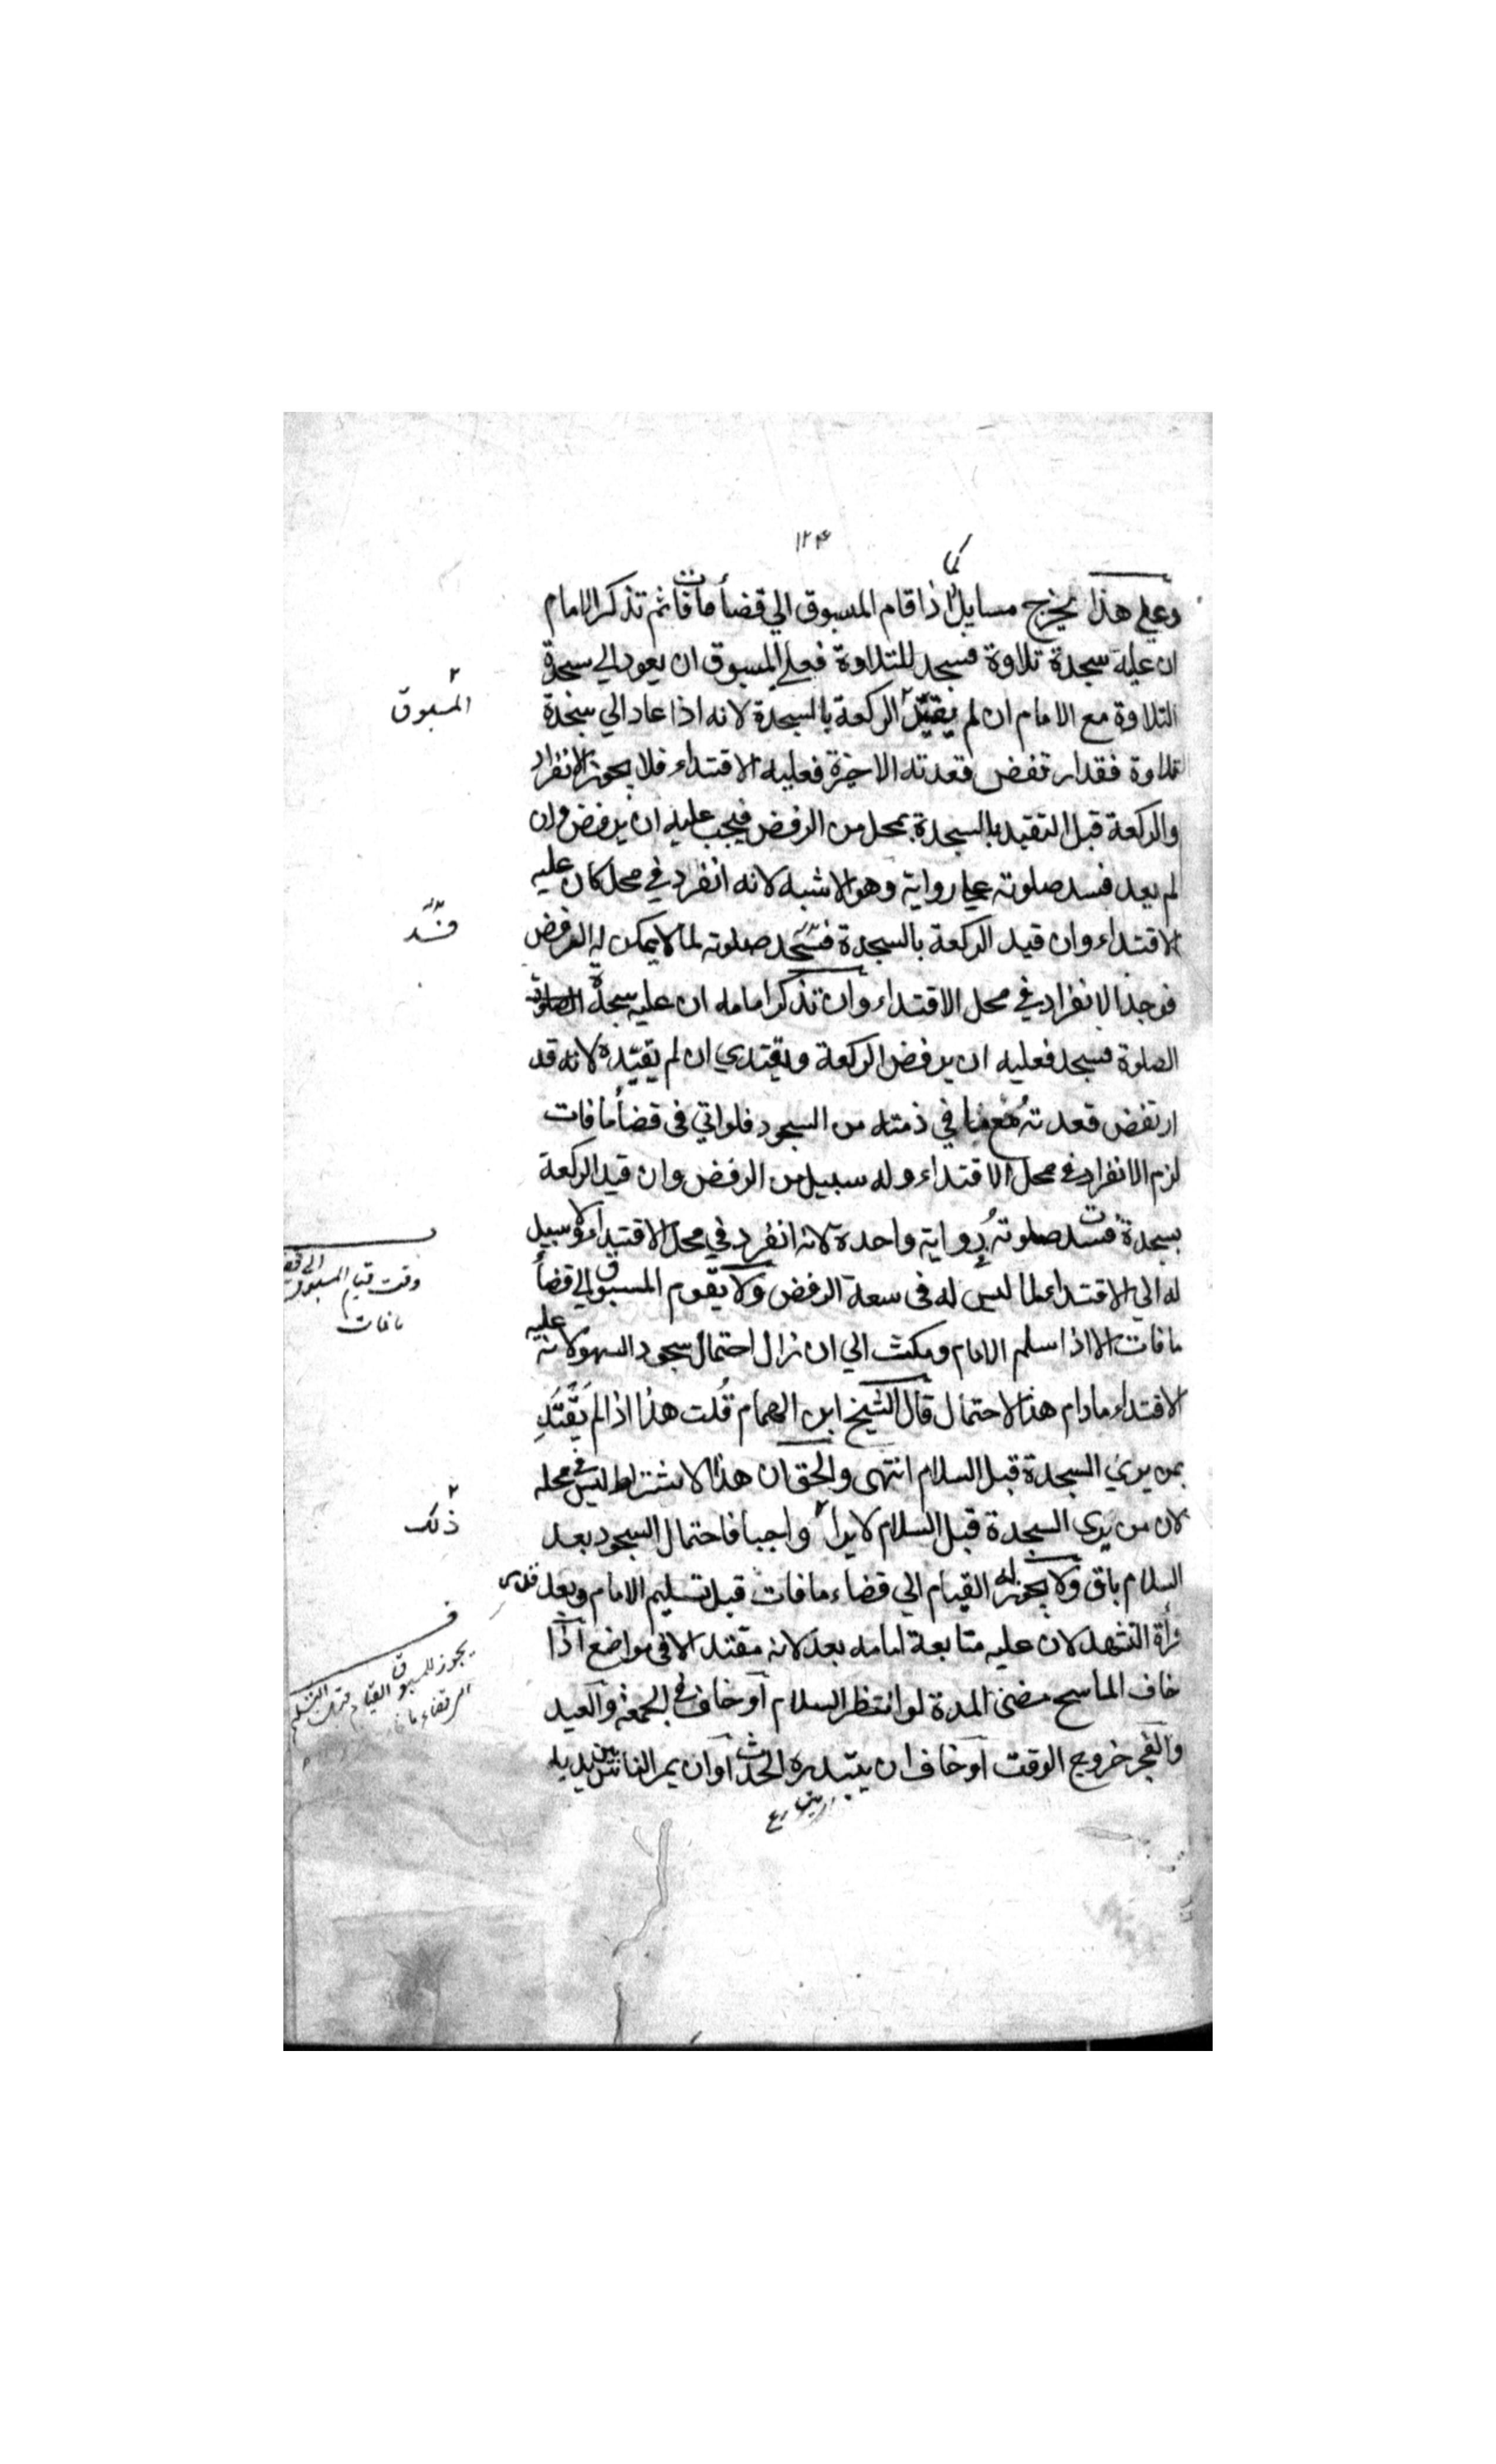 ١٢٤
وعلي هذا يخرج مسايل اذا قام المسبوق الي قضأ ما فات ثم تذكر الامام
ان عليه سجدة تلاوة فسجد للتلاوة فعلي المسبوق ان يعود الي سجدة
التلاوة مع الامام ان لم يقيد الركعة بالسجدة لانه اذا عاد الي سجدة
تلاوة فقد ارتفض قعدته الاخيرة فعليه الاقتداء فلا يجوز الانفراد
والركعة قبل التقيد بالسجدة بمحل من الرفض فيجب عليه ان يرفض وان
لم يعد فسد صلوته علي رواية وهو الاشبه لانه انفرد في محل كان عليه
الاقتداء وان قيد الركعة بالسجدة فسد صلوته لما لا يمكن له الرفض
فوجد الانفراد في محل الاقتداء وان تذكر امامه ان عليه سجدة
الصلوة فسجد فعليه ان يرفض الركعة ويقتدي ان لم يقيده لانه قد
ارتفض قعدته في ذمته من السجود فلو اتي في قضأ ما فات
لزم الانفراد في محل الاقتداء وله سبيل من الرفض وان قيد الركعة
بسجدة فسدت صلوته رواية واحدة لانه انفرد في محل الاقتداء ولا سبيل
له الي الاقتداء لما ليس له في سعة الرفض ولا يقوم المسبوق الي قضأ
ما فات الا اذا سلم الامام ومكث الي ان زال احتمال سجود السهو لانه عليه
الاقتداء مادام هذا الاحتمال قال الشيخ ابن الهمام قُلت هذا اذا لم يَقْتَدِ
بمن يري السجدة قبل السلام انتهى والحق ان هذا الاشتراط ليس في محله
لان من يري السجدة قبل السلام لا يرا واجبا فاحتمال السجود بعد
السلام باق ولا يجوز له القيام الي قضاء ما فات قبل تسليم الامام وبعد قدر
قرأة التشهد لان عليه متابعة امامه بعد لانه مقتد الا في مواضع اذا
خاف الماسح مضى المدة لو انتظر السلام او خاف في الجمعة والعيد
والفجر خروج الوقت او خاف ان يبتدره الحدث او ان يمر الناس بين يديه
المسبوق
فسد
وقت قيام المسبوق الي
ما فات
ذلك
يجوز للمسبوق القيام قبل التسليم